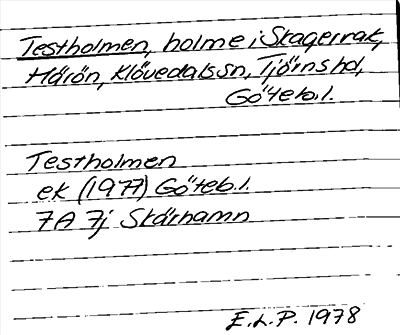 Testholmen, holme i Skagerrak,
Härön, Klövedals sn, Tjörns hd,
Göteb.l.
Testholmen
ek (1977) Göteb.l.
7A 7j Skärhamn
E.L.P. 1978